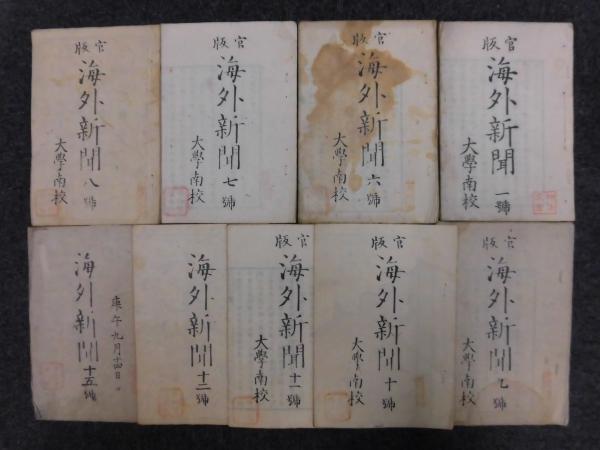 官版
海外新聞 一號
大學南校
官版
海外新聞 六號
大學南校
官版
海外新聞 七號
大學南校
官版
海外新聞 八號
大學南校
官版
海外新聞 九號
大學南校
官版
海外新聞 十號
大學南校
官版
海外新聞 十一號
大學南校
海外新聞 十二號
庚午九月十四日
海外新聞 十五號